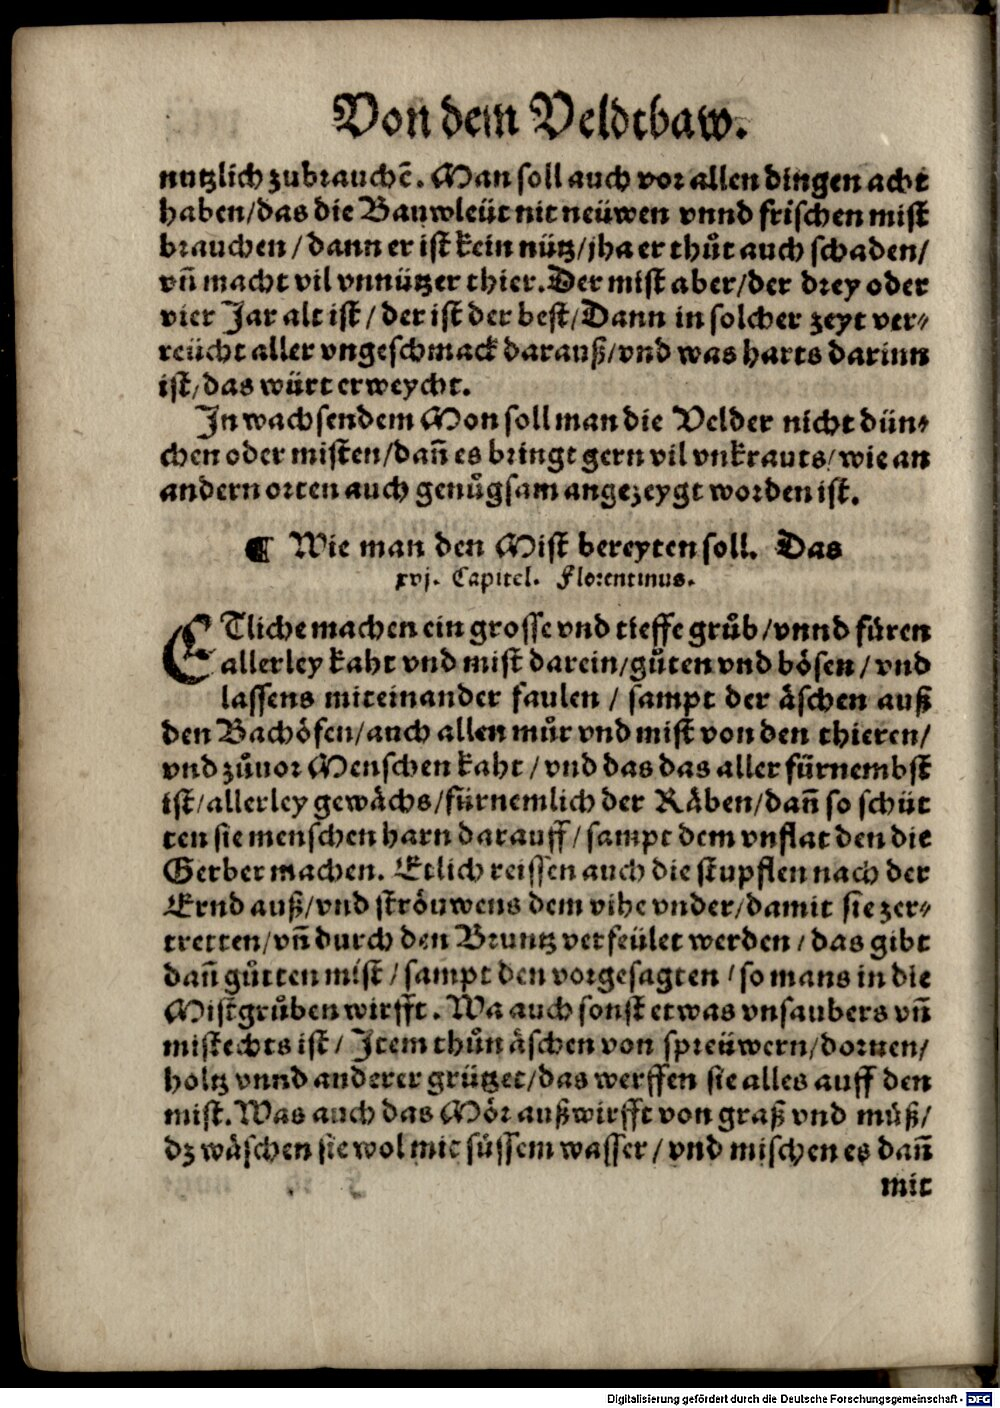 Von dem Veldtbaw.
nutzlich zubrauchē. Man soll auch vor allen dingen acht
haben/das die Bauwleüt nit neüwen vnnd frischen mist
brauchen/dann er ist kein nütz/jha er thůt auch schaden/
vñ macht vil vnnützer thier. Der mist aber/der drey oder
vier Jar alt ist/der ist der best/Dann in solcher zeyt ver⸗
reücht aller vngeschmack darauß/vnd was harts darinn
ist/das würt erweycht.
In wachsendem Mon soll man die Velder nicht dün⸗
chen oder misten/dañ es bringt gern vil vnkrauts/wie an
andern orten auch genůgsam angezeygt worden ist.
¶ Wie man den Mist bereyten soll. Das
xvj. Capitel. Florentinus.
ETliche machen ein grosse vnd tieffe grůb/vnnd füren
allerley kaht vnd mist darein/gůten vnd bösen/vnd
lassens miteinander faulen/sampt der äschen auß
den Bachöfen/auch allen můr vnd mist von den thieren/
vnd zůuor Menschen kaht/vnd das das aller fürnembst
ist/allerley gewächs/fürnemlich der Räben/dañ so schüt
ten sie menschen harn darauff/sampt dem vnflat den die
Gerber machen. Etlich reissen auch die stupflen nach der
Ernd auß/vnd ströuwens dem vihe vnder/damit sie zer⸗
tretten/vñ durch den Bruntz verfeület werden/das gibt
dañ gůtten mist/sampt den vorgesagten/so mans in die
Mistgrůben wirfft. Wa auch sonst etwas vnsaubers vñ
mistechts ist/Item thůn äschen von spreüwern/dornen/
holtz vnnd anderer grützet/das werffen sie alles auff den
mist. Was auch das Mör außwirfft von graß vnd müß/
dz wäschen sie wol mit süssem wasser/vnd mischen es dañ
mit
Digitalisierung gefördert durch die Deutsche Forschungsgemeinschaft - DFG